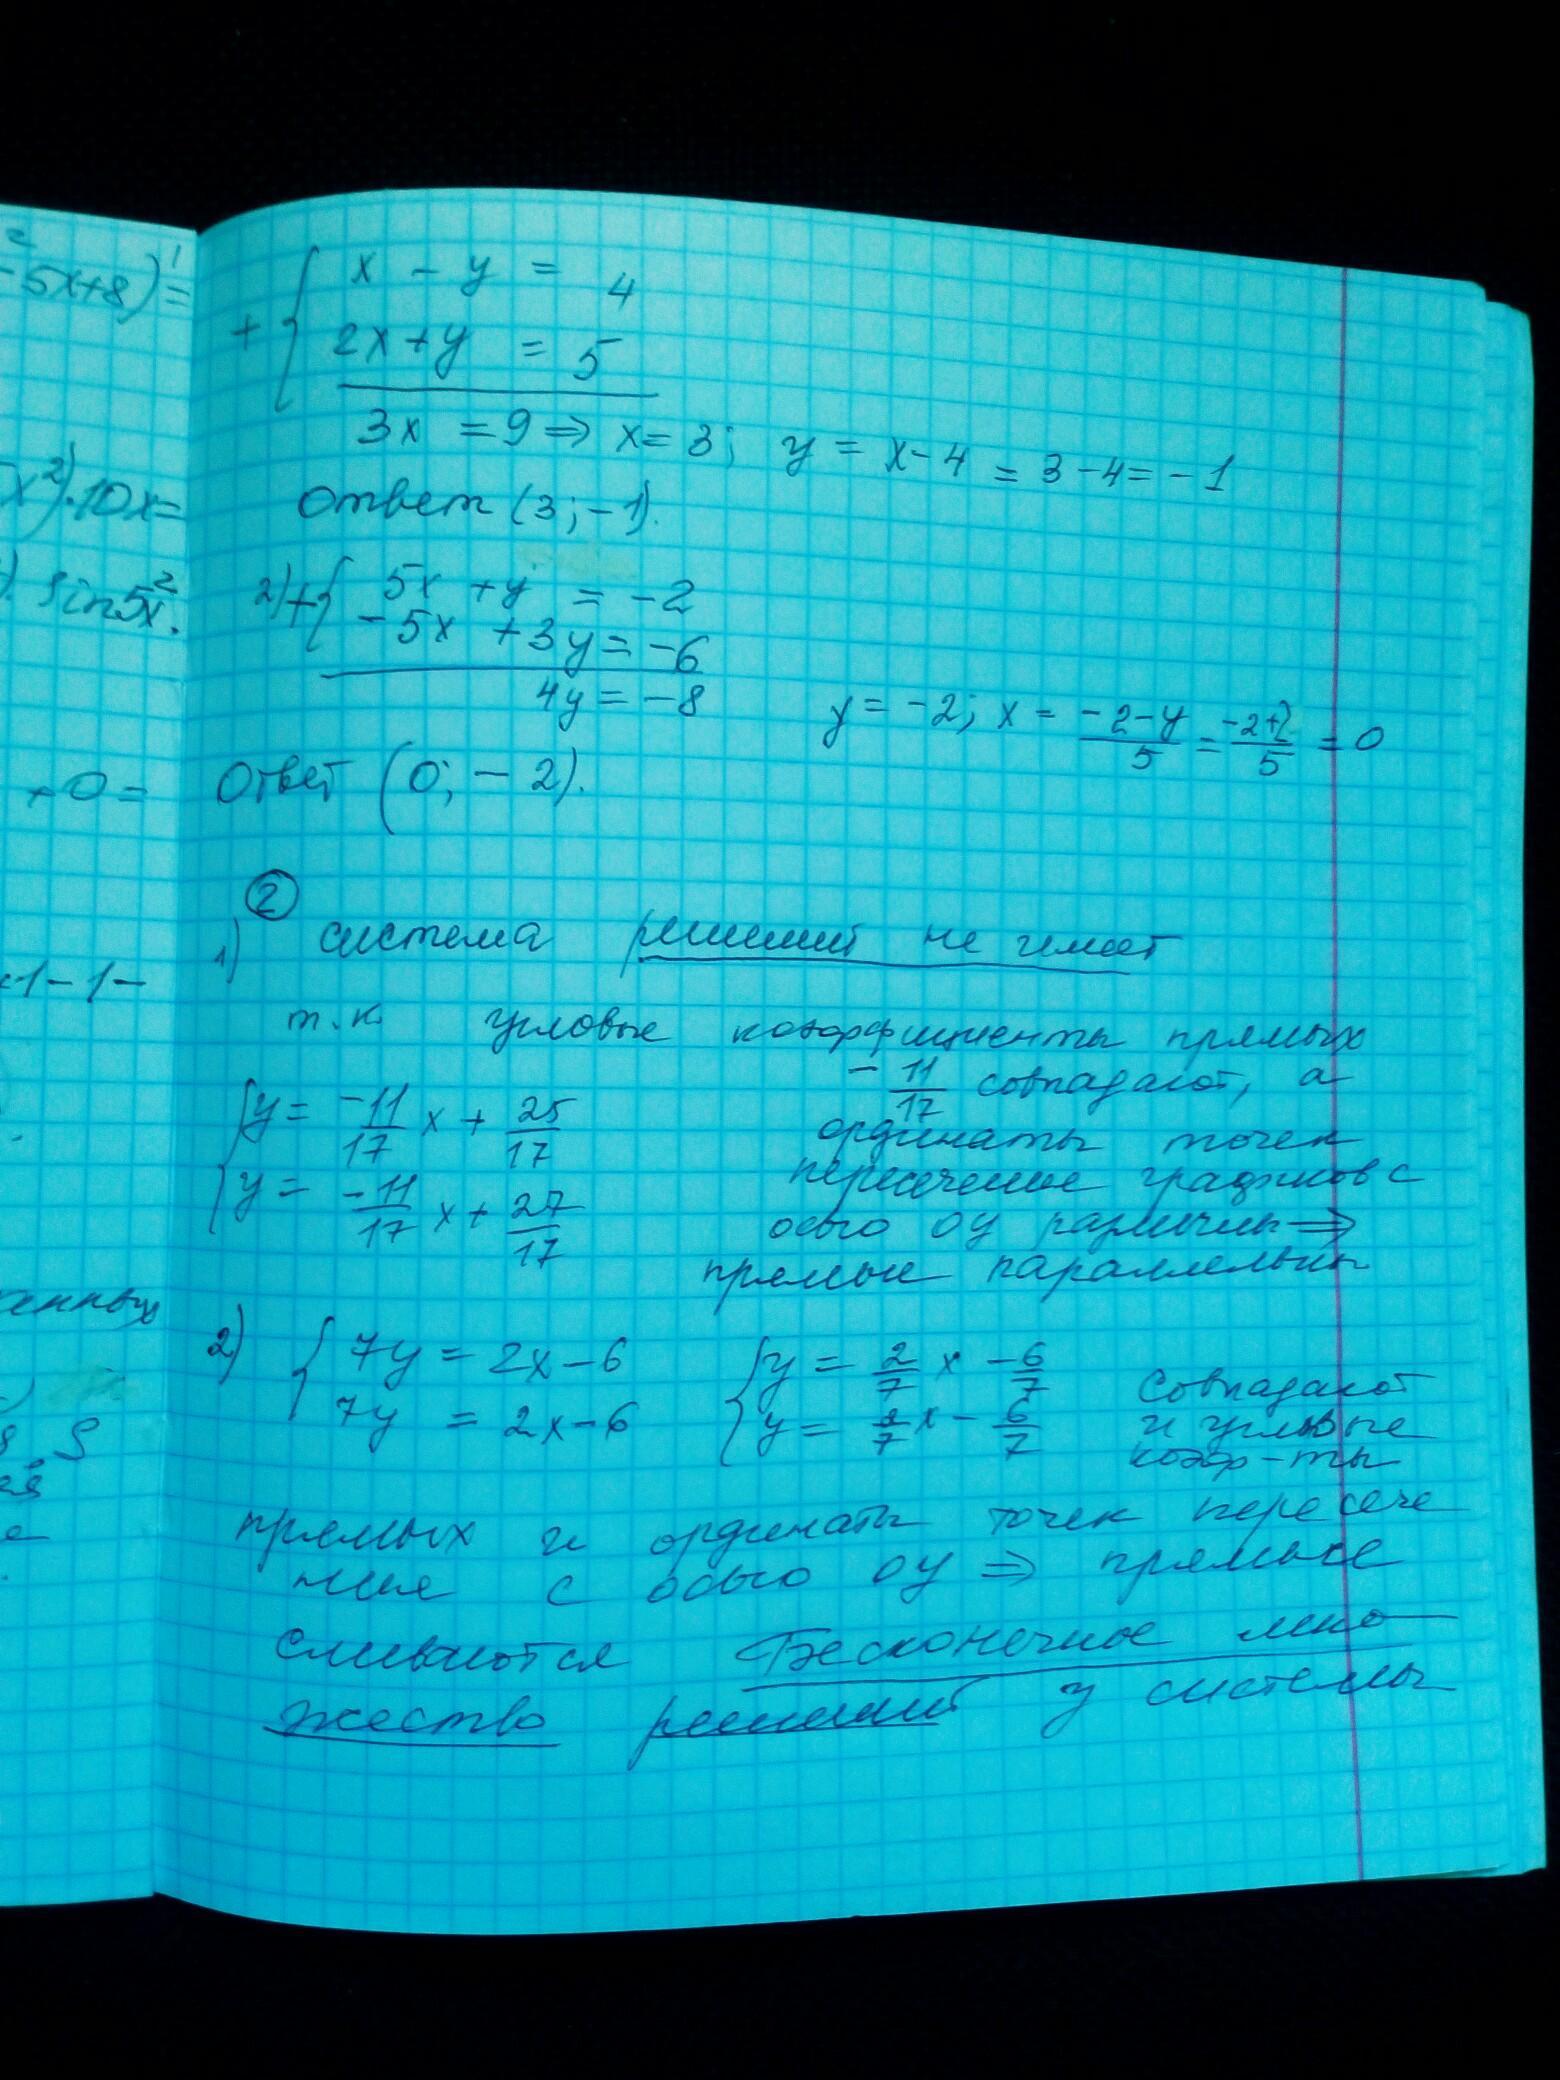 -5x+8)'=
x²)·10x=
sin5x².
+0=
-1-1-
енных
+ { x - y = 4
2x+y = 5
3x = 9 ⇒ x = 3; y = x-4 = 3-4 = -1
Ответ (3; -1).
2) + { 5x + y = -2
-5x + 3y = -6
4y = -8 y = -2; x = (-2-y)/5 = (-2+2)/5 = 0
Ответ (0; -2).
②
1) система решений не имеет
т.к угловые коэффициенты прямых
-11/17 совпадают, а
{ y = -11/17 x + 25/17 ординаты точек
пересечение графиков с
y = -11/17 x + 27/17 осью оу различны ⇒
прямые параллельны
2) { 7y = 2x-6 { y = 2/7 x - 6/7 совпадают
7y = 2x-6 y = 2/7 x - 6/7 и угловые
коэф-ты
прямых и ординаты точек пересече
ния с осью оу ⇒ прямые
сливаются Бесконечное мно-
жество решений у системы